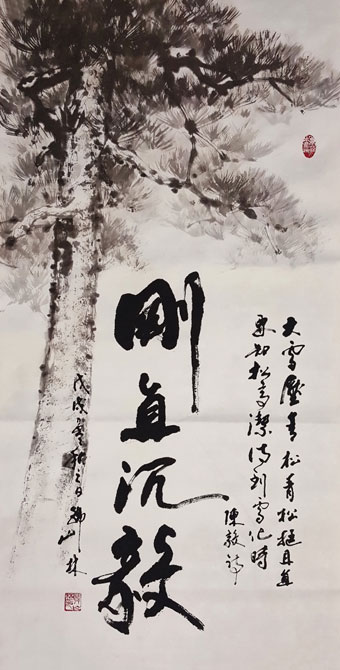 大雪壓青松青松挺且直
要知松高潔待到雪化時
陳毅詩
剛直沉毅
戊戌